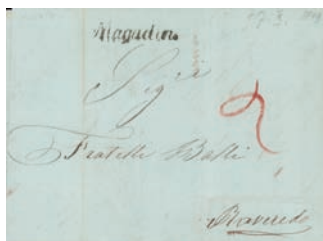 Magadino
Sig.ri
Fratelli Balli
Roveredo